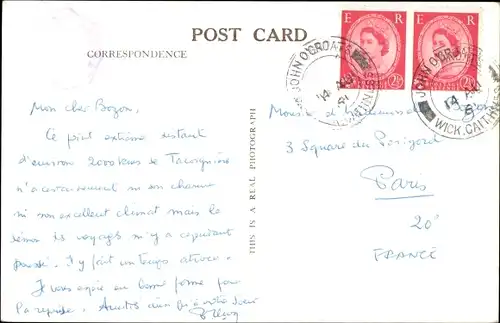 POST CARD
CORRESPONDENCE
E R
2½D
E R
2½D
JOHN O'GROATS
14
WICK, CAITHNESS
JOHN O'GROATS
14
WICK, CAITHNESS
Mon cher Bozon,
Ce point extrême distant
d'environ 2000 kms de
n'a certainement ni son charme
ni son excellent climat mais le
démon des voyages m'y a cependant
poussé. Il y fait un temps atroce.
Je vous espère en bonne forme pour
la reprise. Amitiés ainsi qu'à votre
THIS IS A REAL PHOTOGRAPH
3 Square du Périgord
Paris
20e
FRANCE